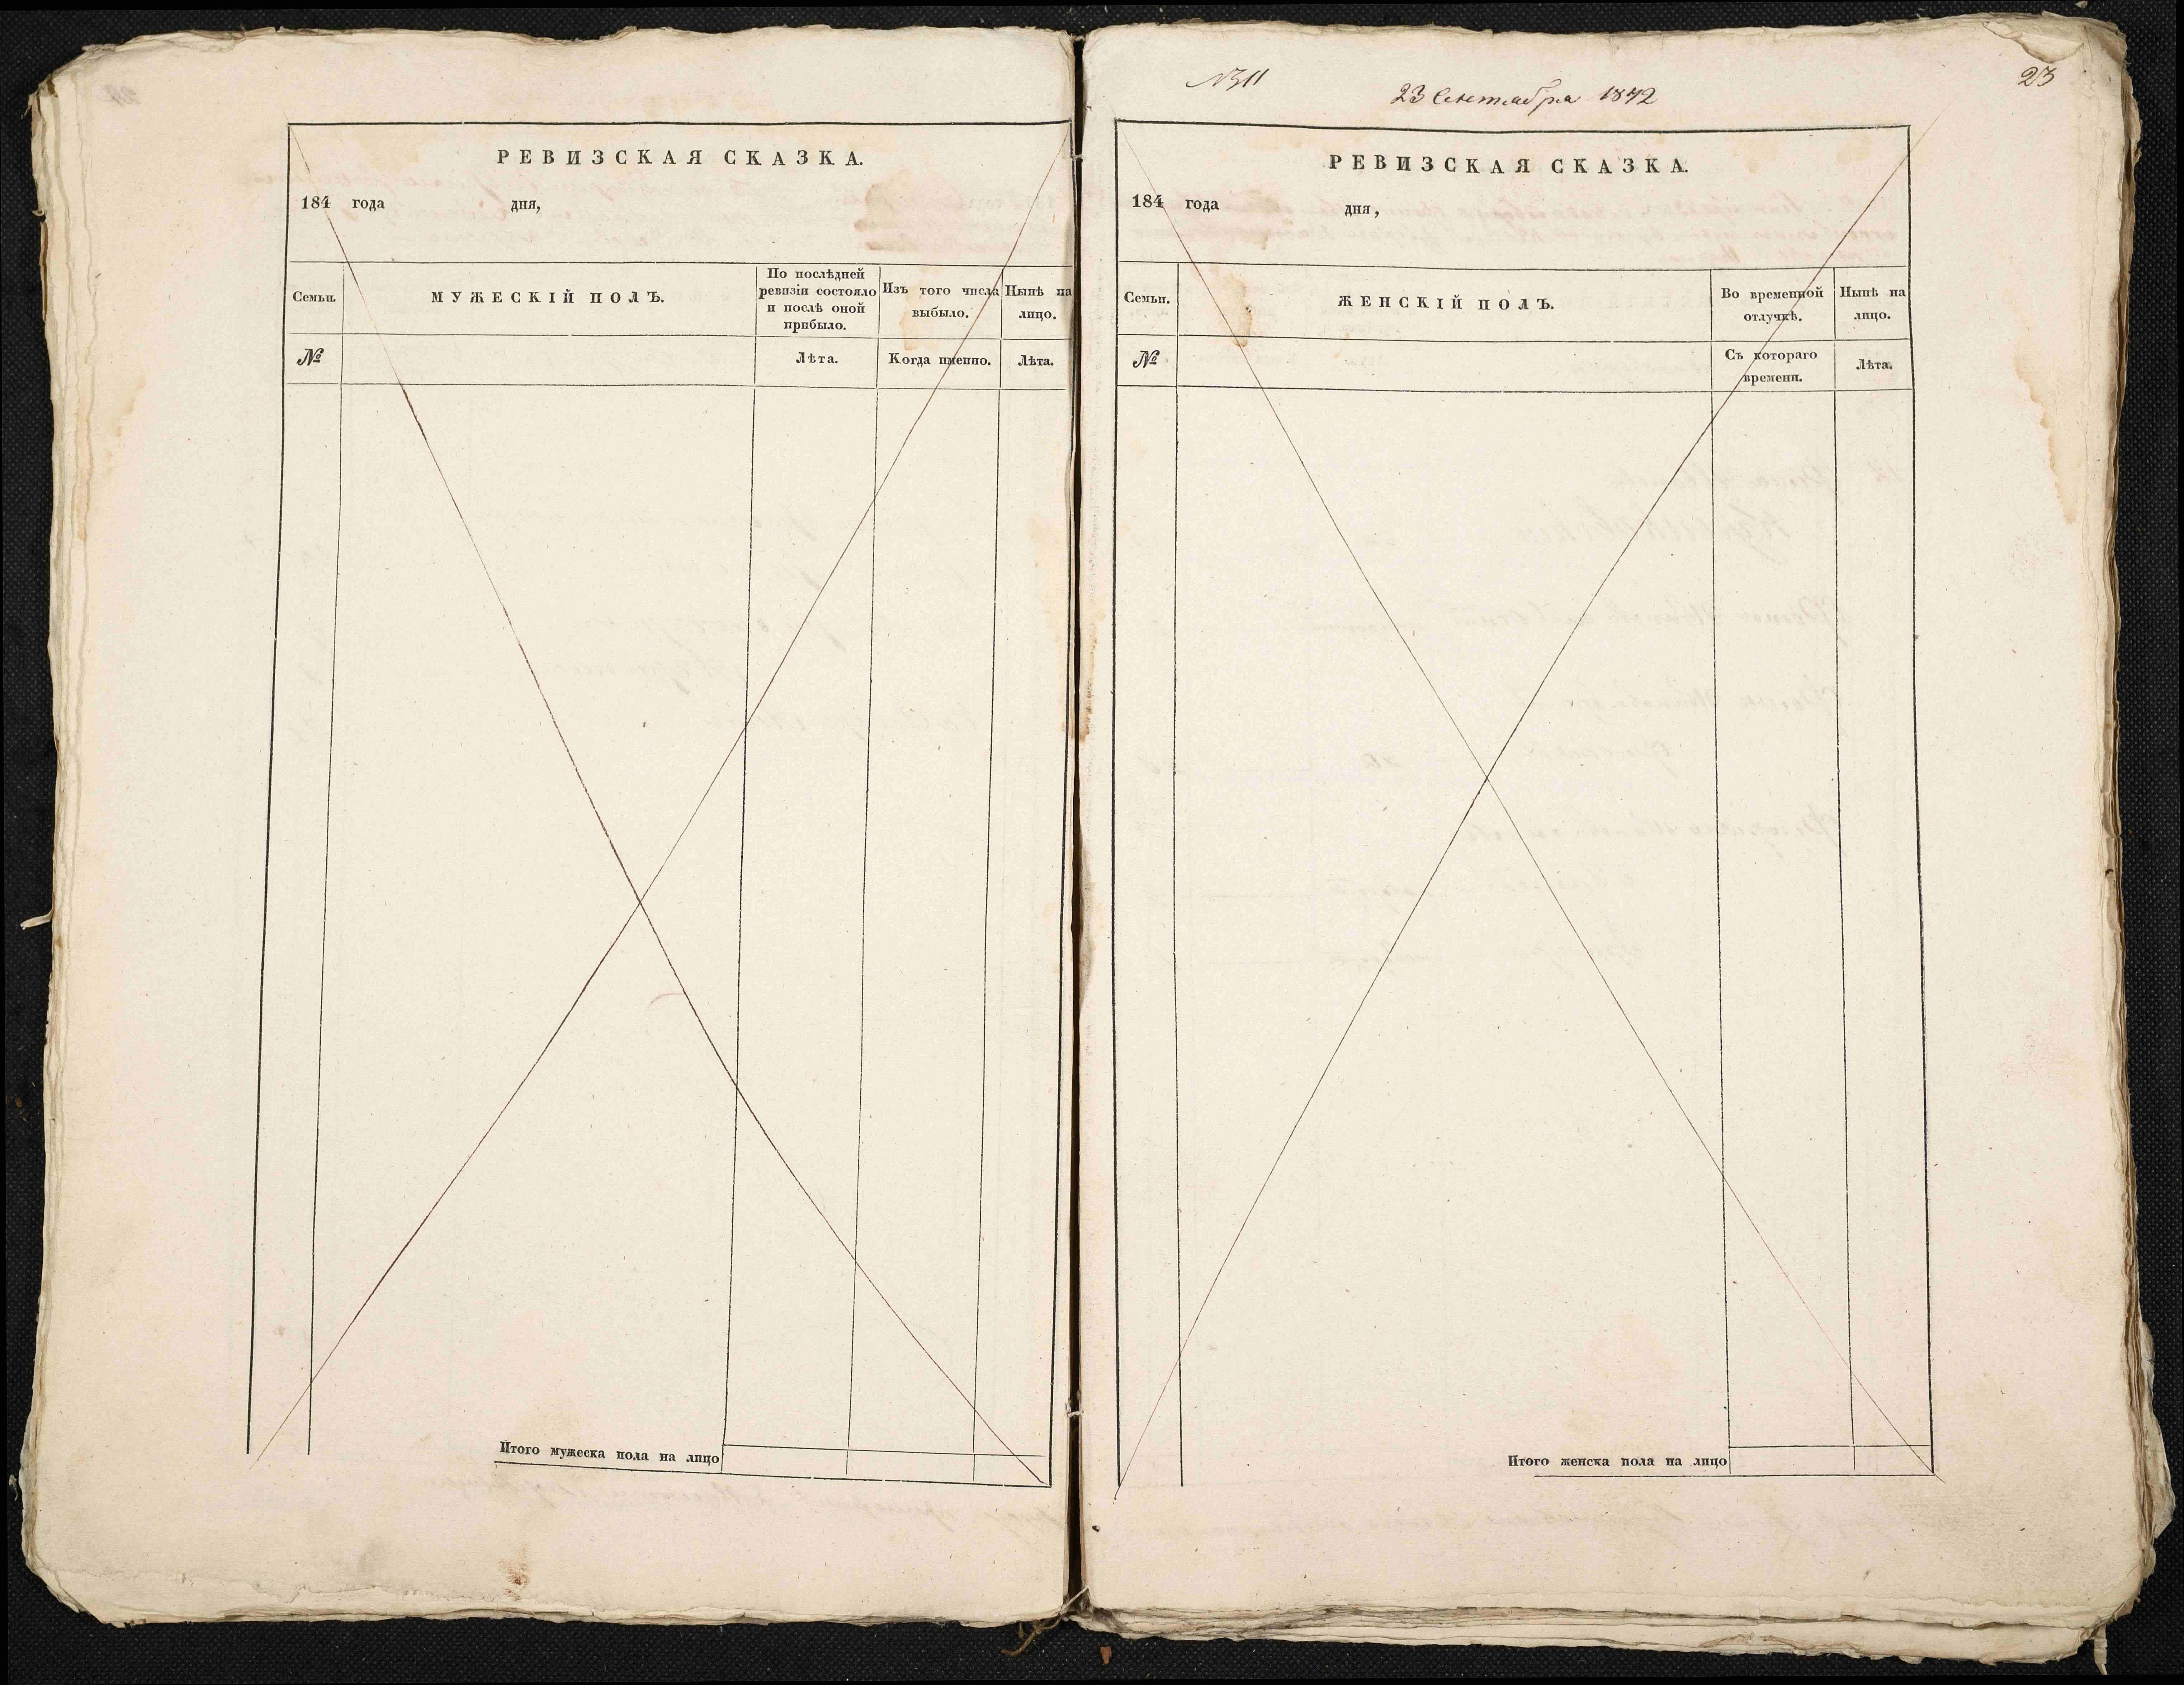 РЕВИЗСКАЯ СКАЗКА.
184 года дня,
Семьи.
МУЖЕСКІЙ ПОЛЪ.
По послѣдней
ревизіи состояло
и послѣ оной
прибыло.
Изъ того числа
выбыло.
Нынѣ на
лицо.
№
Лѣта.
Когда именно.
Лѣта.
Итого мужеска пола на лицо
№ 11
23 Сентября 1842
23
РЕВИЗСКАЯ СКАЗКА.
184 года дня,
Семьи.
ЖЕНСКІЙ ПОЛЪ.
Во временной
отлучкѣ.
Нынѣ на
лицо.
№
Съ котораго
времени.
Лѣта.
Итого женска пола на лицо